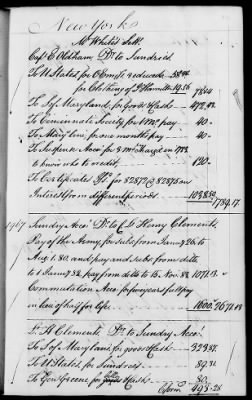 New York
Mr White's Lett.
Capt E Oldham Dr. to Sundries
To U States for 58.84
for Clothing of 19.56 78.40
To Jos. Maryland, for goods & Cash 472.82
To Cincinnati Society for 1 Mo. pay 40
To Mary land, for one month pay 40
To Suspence Acco for 3 Mo. in 1783
to know who to credit 120
To Certificates for 82872 @ 82875 on
Interest from different periods 1789.17
1967 Sundry Acco. Dr. to Henry Clements
Pay of the Army for subs. from Jany 26 to
Aug 1. 80. and pay and subs. from ditto
to 1 Jany 82. pay from ditto to 15 Nov. 83 1071.13
Commutation Acco for five years full pay
in lieu of half for life 1600 2671.13
Lt. H Clements Dr. to Sundry Acco.
To Jos. Mary land for goods & Cash 323.81
To U States, for Sundries 89.31
To Gen Greene for Cash 80